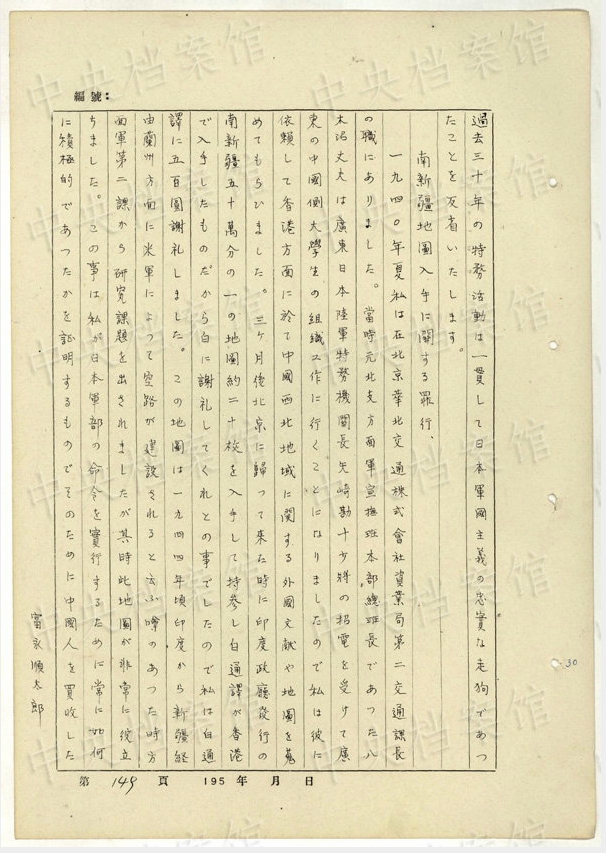 編號：
過去三十年の特務活動は一貫して日本軍國主義の忠實な走狗であつ
たことを反省いたします。
南新疆地圖入手に関する罪行、
一九四〇年夏私は在北京華北交通株式會社資業局第二交通課長
の職にありました。當時元北支方面軍宣撫班本部總班長であつた八
木沼丈夫は廣東日本陸軍特務機関長矢崎勘十少将の招電を受けて廣
東の中國側大學生の組織工作に行くことになりましたので私は彼に
依頼して香港方面に於て中國西北地域に関する外國文献や地圖を蒐
めてもらひました。三ヶ月後北京に歸って来た時に印度政廳発行の
南新疆五十萬分の一の地圖約二十枚を入手して持参し白通譯が香港
で入手したものだから白に謝礼してくれとの事でしたので私は白通
譯に五百圓謝礼しました。この地圖は一九四四年頃印度から新疆経
由蘭州方面に米軍によって空路が建設されると云ふ噂のあつた時方
面軍第二課から研究課題を出されましたが其時此地圖が非常に役立
ちました。この事は私が日本軍部の命令を實行するために常に如何
に積極的であつたかを証明するものでそのために中國人を買收した
富永順太郎
第 149 頁 195 年 月 日
30
中央档案馆